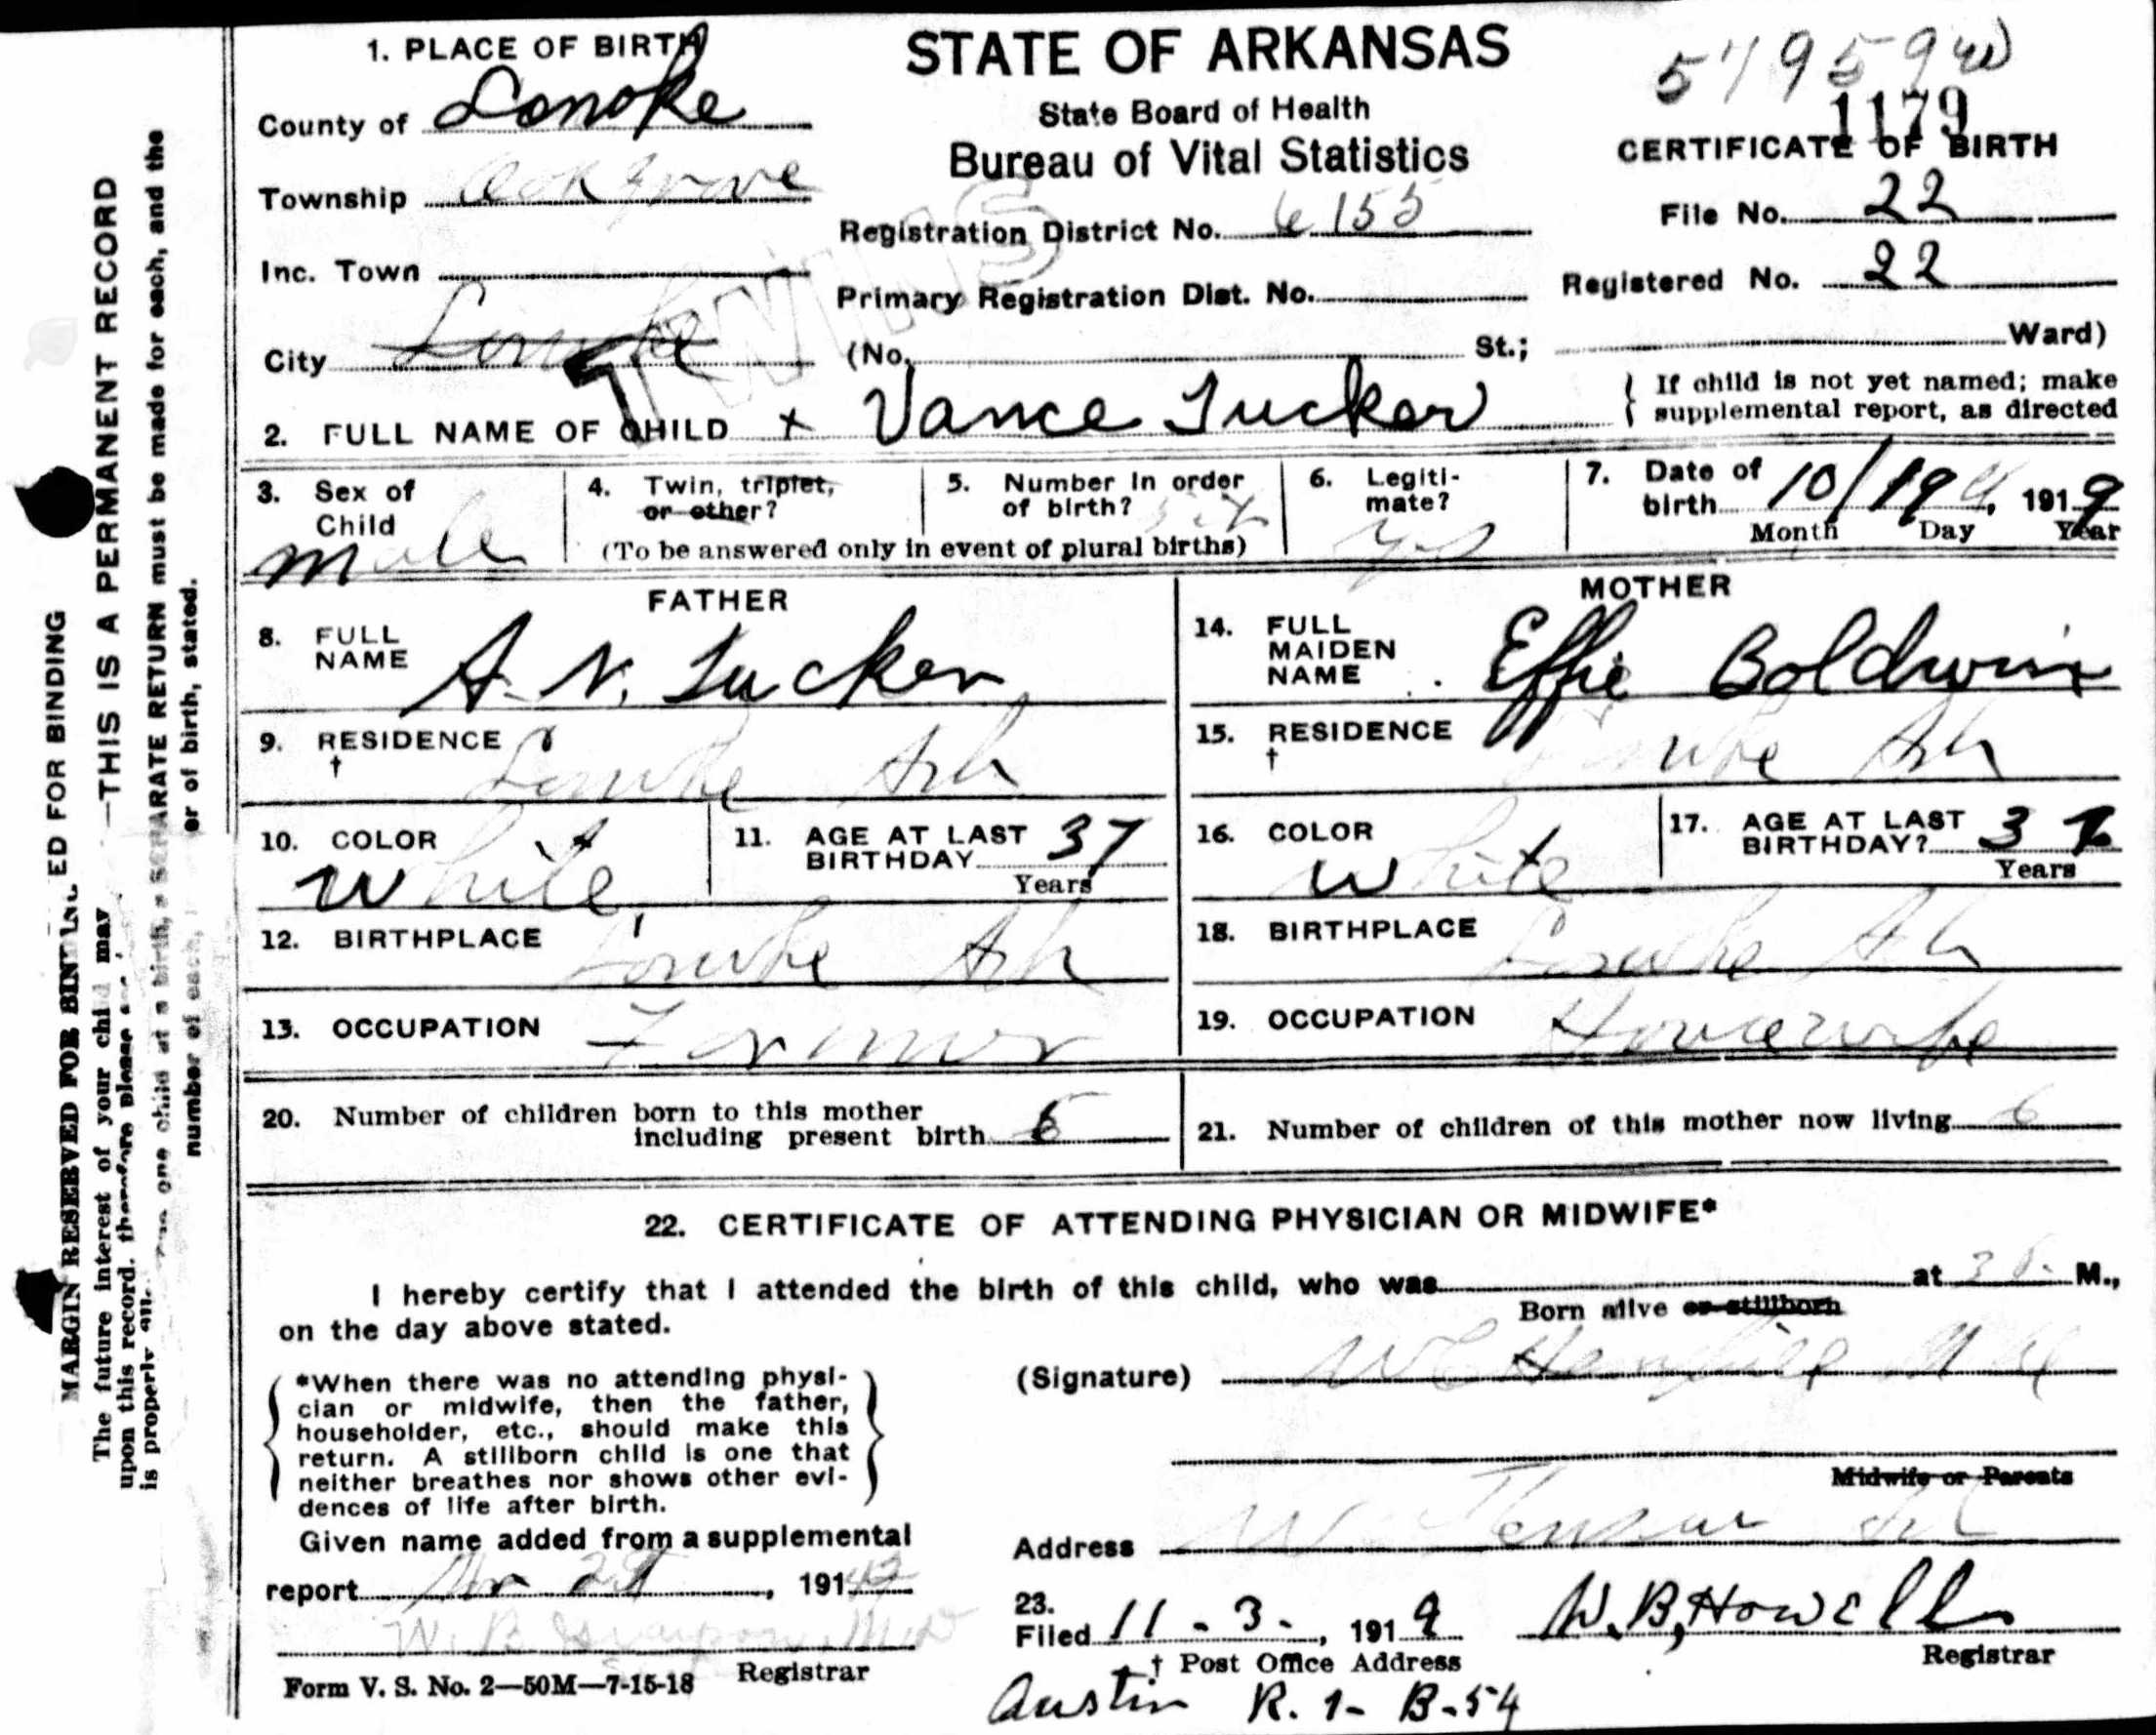 STATE OF ARKANSAS
State Board of Health
Bureau of Vital Statistics
1179
CERTIFICATE OF BIRTH
1. PLACE OF BIRTH
County of Lonoke
Township Oak Grove
Inc. Town
City Lonoke
Registration District No. 6155
Primary Registration Dist. No.
File No. 22
Registered No. 22
(No. St.; Ward)
TWINS
2. FULL NAME OF CHILD x Vance Tucker
{ If child is not yet named; make
supplemental report, as directed
3. Sex of
Child
male
4. Twin, triplet,
or other?
5. Number in order
of birth?
(To be answered only in event of plural births)
6. Legiti-
mate?
yes
7. Date of
birth 10/19 1919
Month Day Year
FATHER
8. FULL
NAME A. N. Tucker
9. RESIDENCE
† Lonoke Ark
10. COLOR
White
11. AGE AT LAST
BIRTHDAY 37
Years
12. BIRTHPLACE Lonoke Ark
13. OCCUPATION Farmer
MOTHER
14. FULL
MAIDEN
NAME Effie Boldwin
15. RESIDENCE
† Lonoke Ark
16. COLOR
White
17. AGE AT LAST
BIRTHDAY? 3
Years
18. BIRTHPLACE Lonoke Ark
19. OCCUPATION Housewife
20. Number of children born to this mother
including present birth 6
21. Number of children of this mother now living 6
22. CERTIFICATE OF ATTENDING PHYSICIAN OR MIDWIFE*
I hereby certify that I attended the birth of this child, who was at M.,
Born alive or stillborn
on the day above stated.
{ *When there was no attending physi-
cian or midwife, then the father,
householder, etc., should make this
return. A stillborn child is one that
neither breathes nor shows other evi-
dences of life after birth. }
(Signature)
Midwife or Parents
Address
Given name added from a supplemental
report , 191
Registrar
23.
Filed 11 - 3 - , 1919 W.B. Howell
Registrar
† Post Office Address
Austin R. 1- B-54
Form V. S. No. 2—50M—7-15-18
MARGIN RESERVED FOR BINDING
ED FOR BINDING
—THIS IS A PERMANENT RECORD
The future interest of your child may
upon this record. therefore please
is properly
one child at a birth, a SEPARATE RETURN must be made for each, and the
number of each, er of birth, stated.